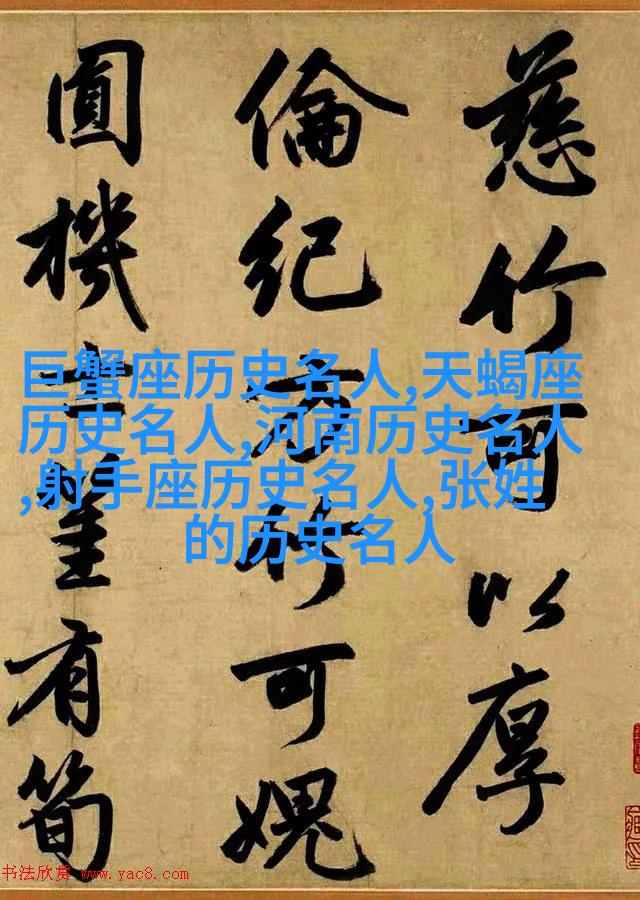 慈竹可以厚
倫紀方竹可媿
圓機士有筍
巨蟹座历史名人,天蝎座
历史名人,河南历史名人
,射手座历史名人,张姓
的历史名人
书法欣赏 www.yac8.com